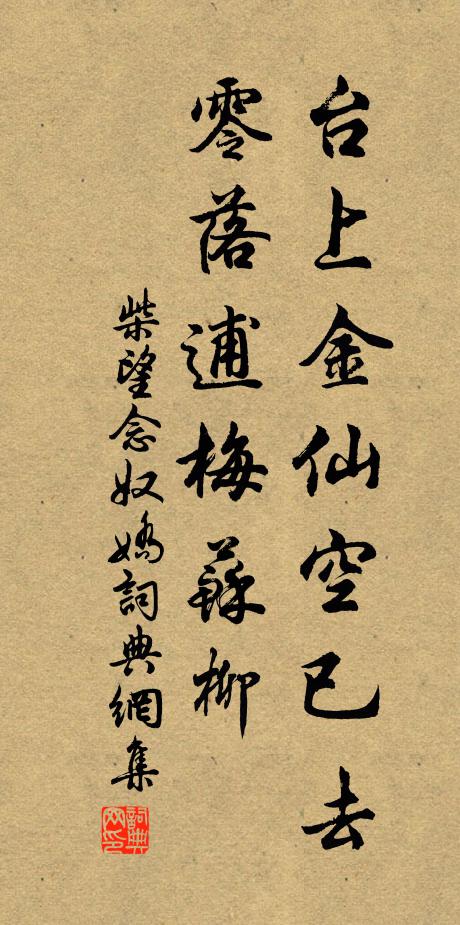 台上金仙空已去
零落逋梅蘇柳
柴望念奴嬌詞典網集
詞典网印